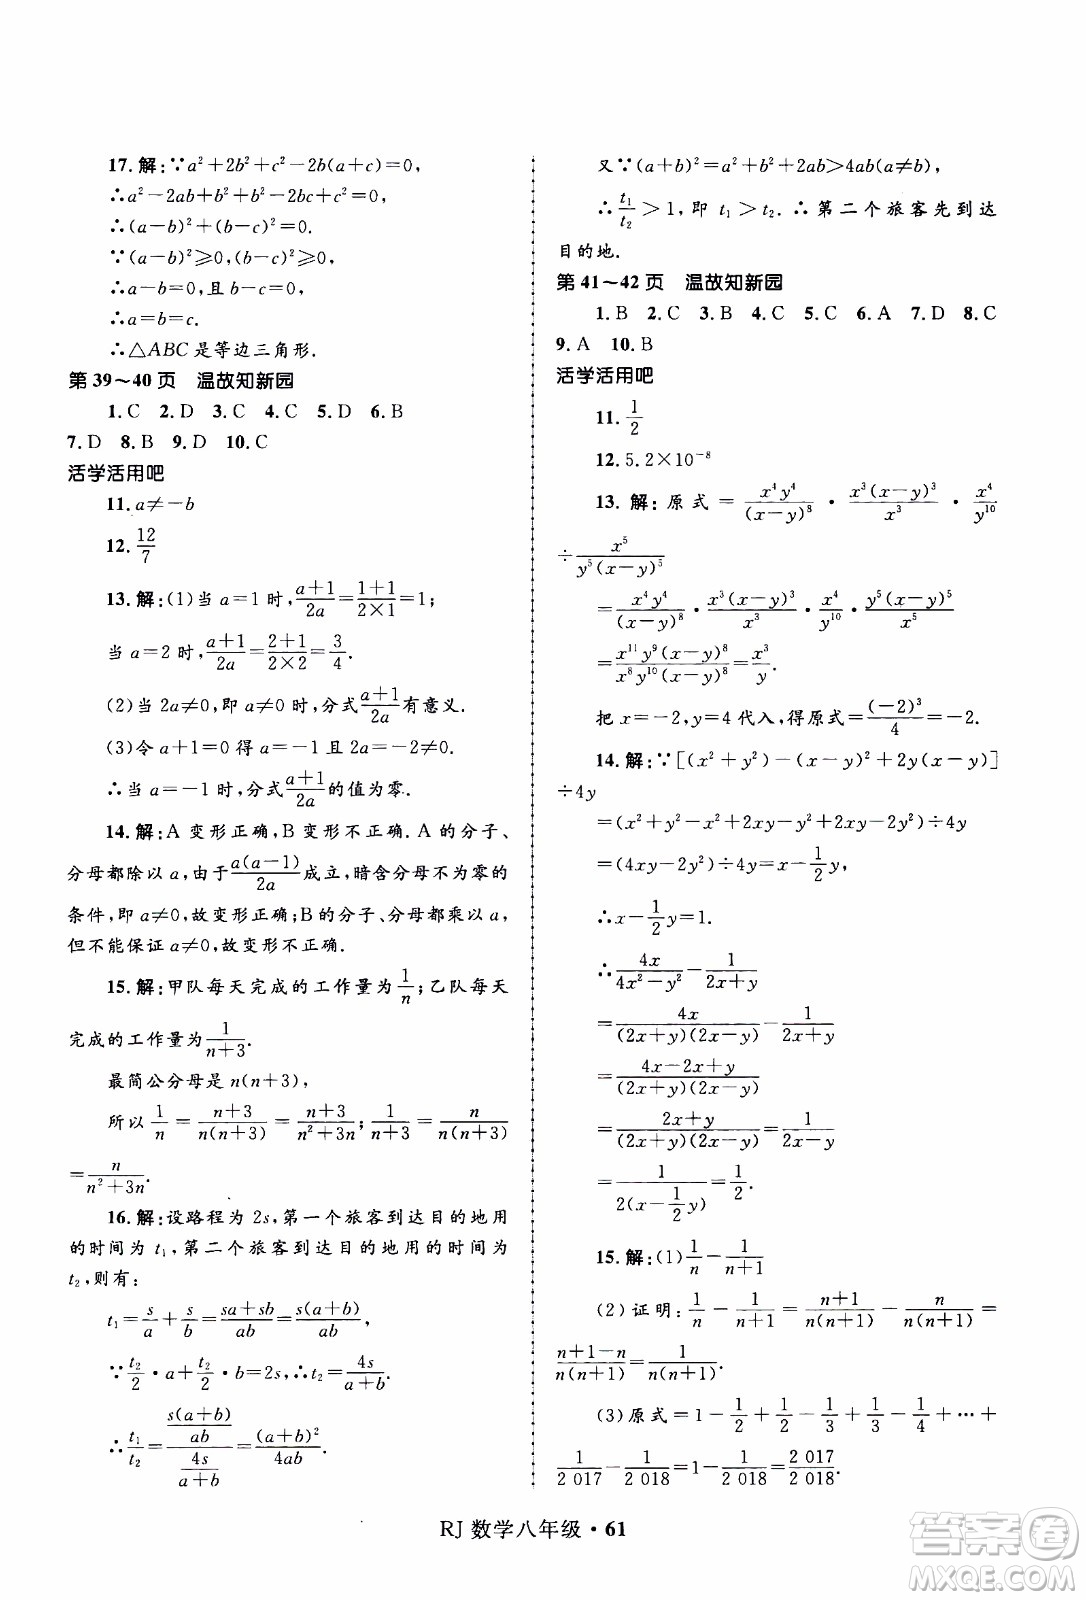 17. 解:∵a²+2b²+c²-2b(a+c)=0,
∴a²-2ab+b²+b²-2bc+c²=0,
∴(a-b)²+(b-c)²=0.
∵(a-b)²≥0,(b-c)²≥0,
∴a-b=0,且b-c=0,
∴a=b=c.
∴△ABC是等边三角形.
第39~40页 温故知新园
1. C 2. D 3. C 4. C 5. D 6. B
7. D 8. B 9. D 10. C
活学活用吧
11. a≠-b
12. 12/7
13. 解:(1)当a=1时,(a+1)/(2a)=(1+1)/(2×1)=1;
当a=2时,(a+1)/(2a)=(2+1)/(2×2)=3/4.
(2)当2a≠0,即a≠0时,分式(a+1)/(2a)有意义.
(3)令a+1=0得a=-1且2a=-2≠0.
∴当a=-1时,分式(a+1)/(2a)的值为零.
14. 解:A变形正确,B变形不正确.A的分子、
分母都除以a,由于a(a-1)/(2a)成立,暗含分母不为零的
条件,即a≠0,故变形正确;B的分子、分母都乘以a,
但不能保证a≠0,故变形不正确.
15. 解:甲队每天完成的工作量为1/n;乙队每天
完成的工作量为1/(n+3).
最简公分母是n(n+3),
所以1/n=(n+3)/(n(n+3))=(n+3)/(n²+3n);1/(n+3)=n/(n(n+3))
=n/(n²+3n).
16. 解:设路程为2s,第一个旅客到达目的地用
的时间为t₁,第二个旅客到达目的地用的时间为
t₂,则有:
t₁=s/a+s/b=(sa+sb)/(ab)=s(a+b)/(ab),
∵t₂/2·a+t₂/2·b=2s,∴t₂=4s/(a+b).
∴t₁/t₂=(s(a+b)/(ab))/(4s/(a+b))=(a+b)²/(4ab).
又∵(a+b)²=a²+b²+2ab>4ab(a≠b),
∴t₁/t₂>1,即t₁>t₂.∴第二个旅客先到达
目的地.
第41~42页 温故知新园
1. B 2. C 3. B 4. C 5. C 6. A 7. D 8. C
9. A 10. B
活学活用吧
11. 1/2
12. 5.2×10⁻⁸
13. 解:原式=x⁴y⁴/(x-y)⁸·x³(x-y)³/x³·x⁴/y¹⁰
÷x⁵/(y⁵(x-y)⁵)
=x⁴y⁴/(x-y)⁸·x³(x-y)³/x³·x⁴/y¹⁰·y⁵(x-y)⁵/x⁵
=x¹¹y⁹(x-y)⁸/(x⁸y¹⁰(x-y)⁸)=x³/y.
把x=-2,y=4代入,得原式=(-2)³/4=-2.
14. 解:∵[(x²+y²)-(x-y)²+2y(x-y)]
÷4y
=(x²+y²-x²+2xy-y²+2xy-2y²)÷4y
=(4xy-2y²)÷4y=x-1/2y,
∴x-1/2y=1.
∴4x/(4x²-y²)-1/(2x+y)
=4x/((2x+y)(2x-y))-1/(2x+y)
=(4x-2x+y)/((2x+y)(2x-y))
=(2x+y)/((2x+y)(2x-y))=1/(2x-y)
=1/(2(x-1/2y))=1/2.
15. 解:(1)1/n-1/(n+1)
(2)证明:1/n-1/(n+1)=(n+1)/(n(n+1))-n/(n(n+1))=
(n+1-n)/(n(n+1))=1/(n(n+1)).
(3)原式=1-1/2+1/2-1/3+1/3-1/4+…+
1/2 017-1/2 018=1-1/2 018=2 017/2 018.
RJ 数学八年级·61
答案圈
MXQE.COM